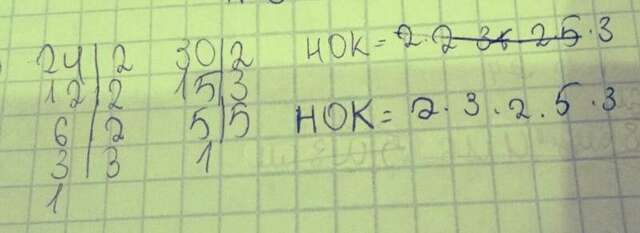 24|2 30|2 НОК= 2·2 3· 2 5·3
12|2 15|3
6|2 5|5 НОК= 2·3·2·5·3
3|3 1
1